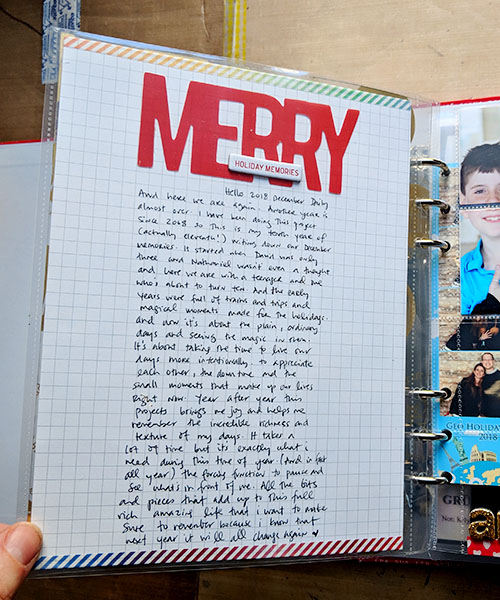 MERRY
HOLIDAY MEMORIES
Hello 2018 December Daily
And here we are again. Another year is
almost over. I have been doing this project
since 2008 so this is my tenth year of
(actually eleventh!) writing down our December
memories. It started when David was only
three and Nathaniel wasn't even a thought
and here we are with a teenager and one
who's about to turn ten. And the early
years were full of trains and trips and
magical moments made for the holidays.
and now it's about the plain, ordinary
days and seeing the magic in them.
It's about taking the time to live our
days more intentionally. to appreciate
each other, the downtime and the
small moments that make up our lives
right now. Year after year this
projects brings me joy and helps me
remember the incredible richness and
texture of my days. It takes a
lot of time but it's exactly what i
need during this time of year (and in fact
all year) the forcing function to pause and
see what's in front of me. All the bits
and pieces that add up to this full
rich amazing life that i want to make
sure to remember because i know that
next year it will all change again
GEO HOLIDAY
2018
a